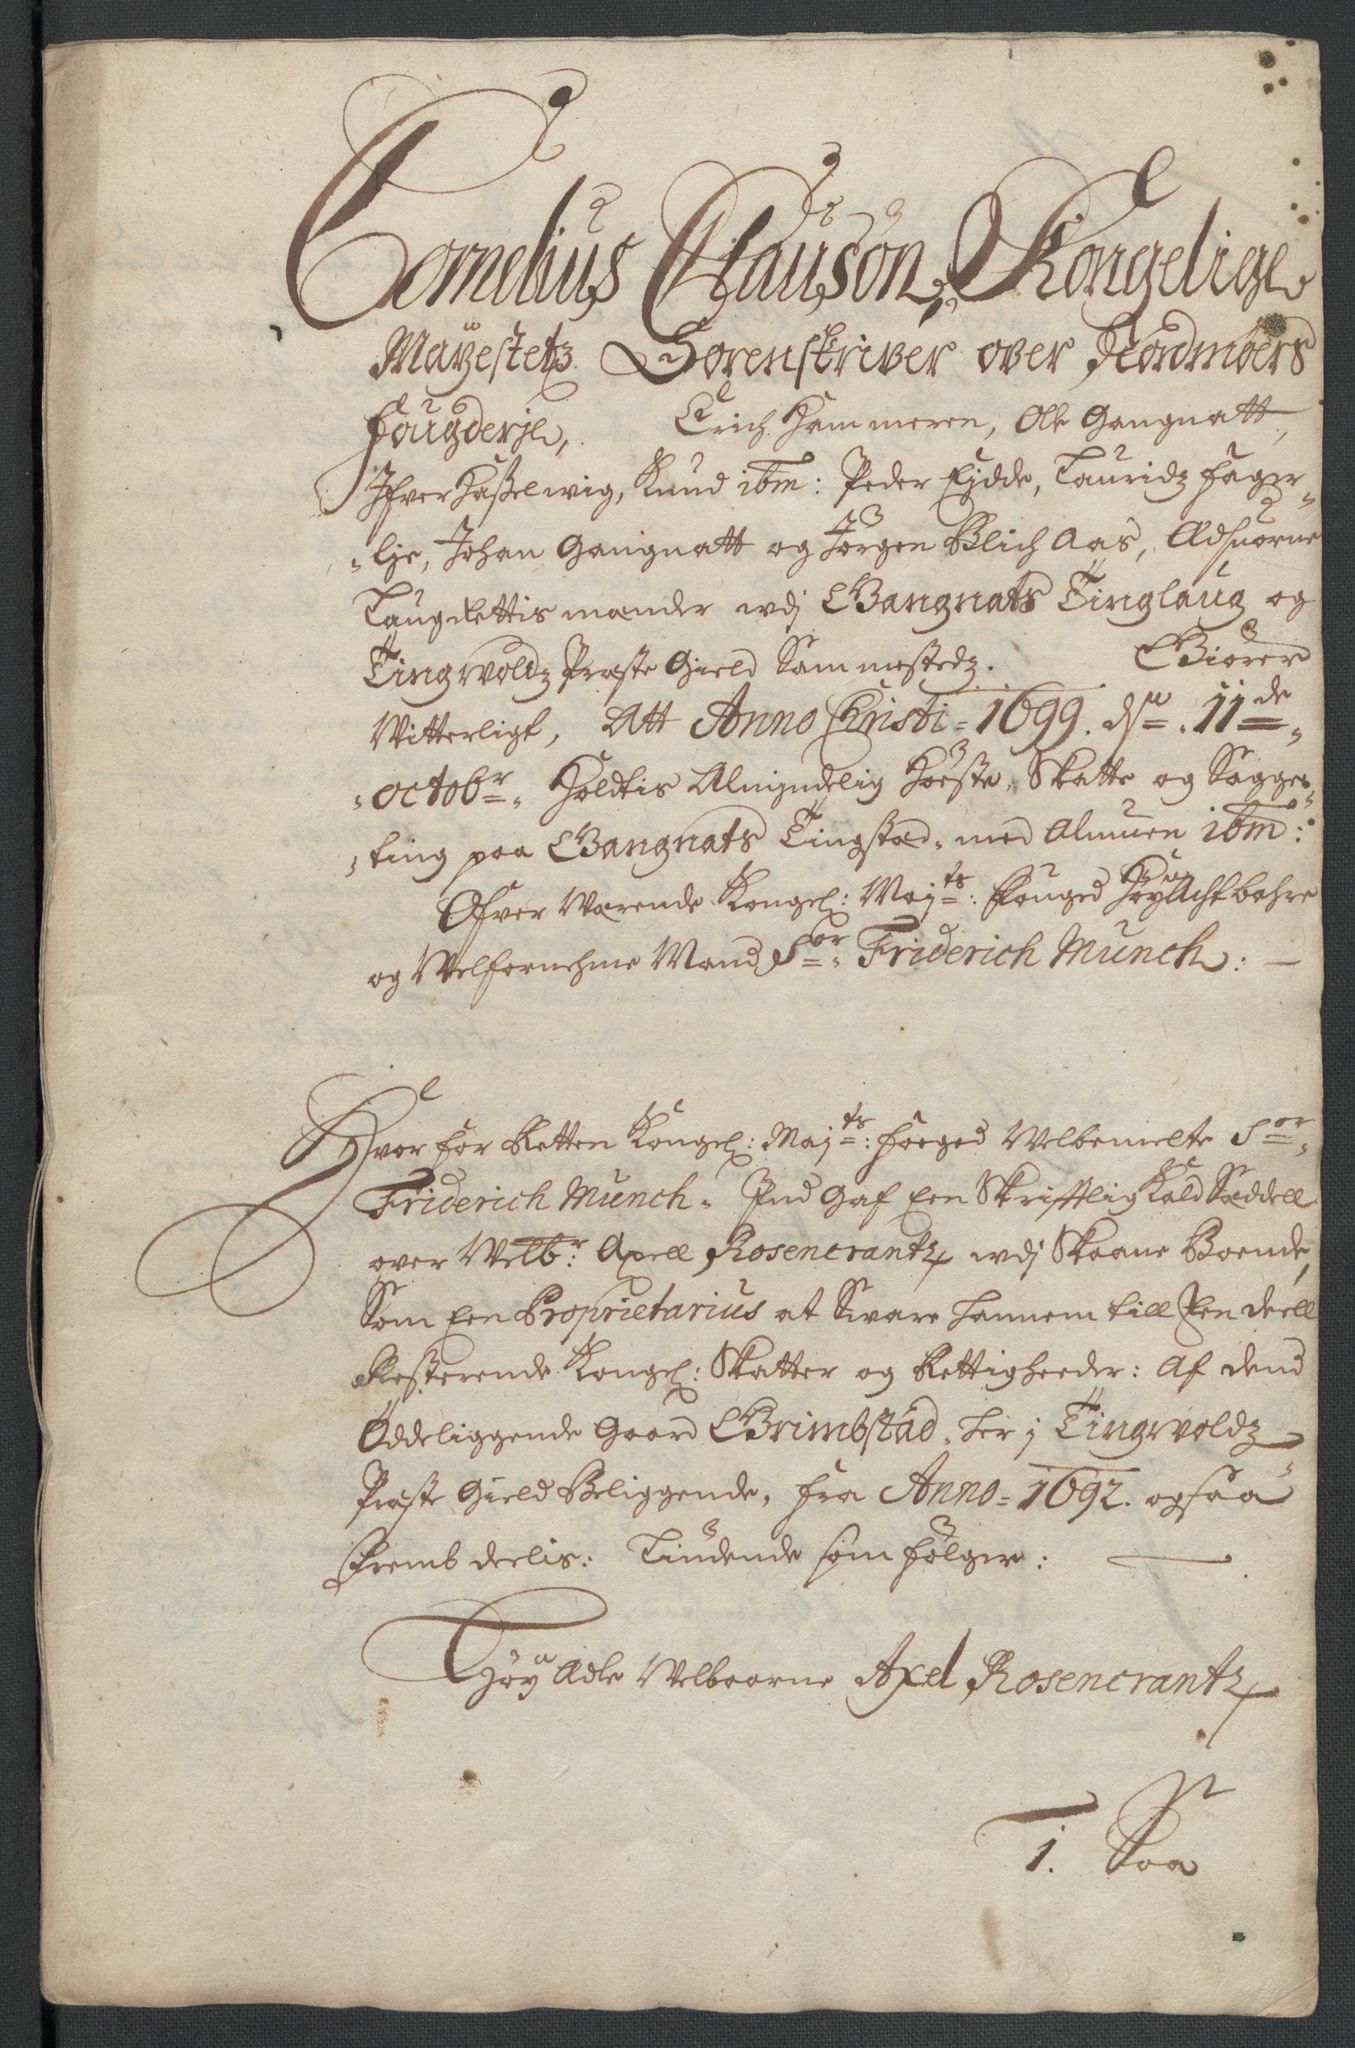 Cornelius Clausøn, Kongelige
Mayestetz Sorenskriver over Nordmøers
Fougderje, Erich Hammeren, Ole Gangnatt,
Ifver Hasselwig, Knud ibm: Peder Eydde, Lauridz Fager-
-lje, Johan Gangnatt og Jørgen Blich Aas, Edsuorne
Laugrettismænder wdj Gangnats Tinglaug og
Tingwoldz Præste Gield Sammestedz. Giører
Witterligt, Att Anno Christi = 1699. dn. 11de
octobr. Holdtis Almindelig Høste, Skatte og Sagge-
-ting paa Gangnats Tingstad, med Almuen ibm:
Ofver Wærende Kongel: Mayts: Fouged Høy Acht bahre
og Welfornehme Mand Sor. Friderich Munch: —
Hvor for Retten Kongel: Mayts: Foeged Welbemelte Sor.
Friderich Munch. Ind Gaf Een Skrifftlig Kald Sæddell
over Welbr: Axell Rosencrantz wdj Skaane Boende,
Som Een Proprietarius at Sware hannem till Een deell
Resterende Kongel: Skatter og Rettigheeder: Af dend
Øddeliggende Gaard Grimbstad, her j Tingwoldz
Præste Gield Beliggende, fra Anno = 1692. ogsaa
Fremb deelis: Liudende som følger: —
Høy Ædle Welbaarne Axel Rosencrantz
1. Saa